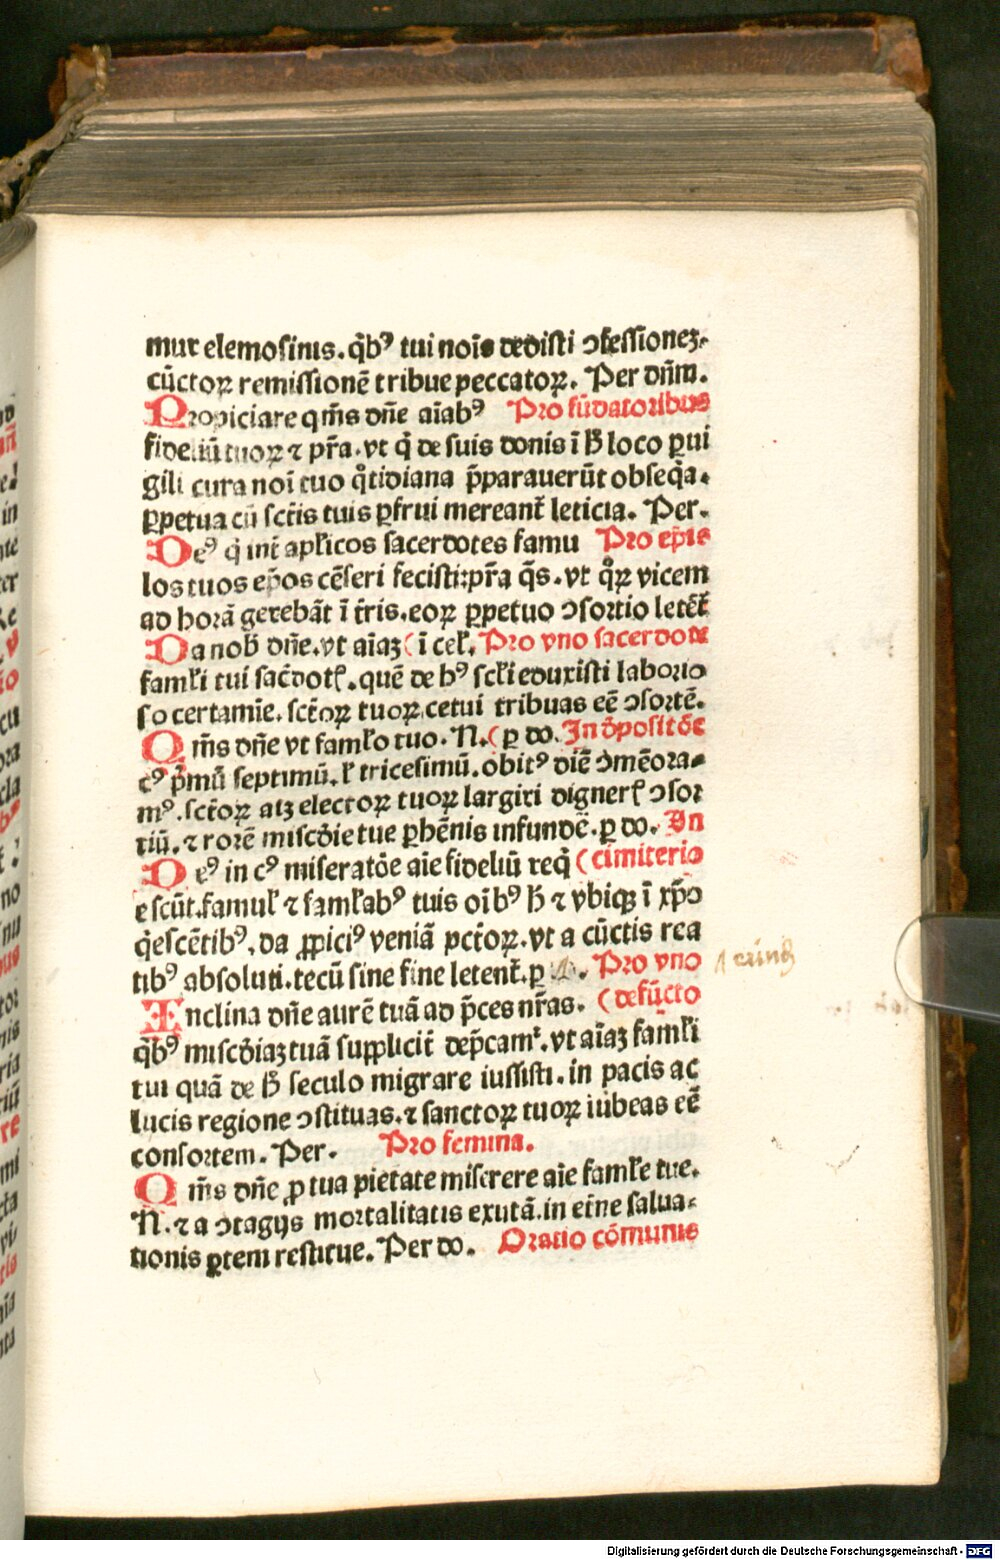 mur elemosinis. q̄bꝰ tui nois̄ dedisti ↄfessioneʒ.
cūctoꝝ remissionē tribue peccatoꝝ. Per dn̄m.
Propiciare qm̄s dn̄e aīabꝰ Pro fūdatoribus
fideliū tuoꝝ ⁊ pr̄a. vt q̄ de suis donis ī h̄ loco ꝑui
gili cura noī tuo q̊tidiana p̄parauerūt obseq̄a.
ꝑpetua cū sctīs tuis ꝑfrui mereant᷑ leticia. Per.
Deꝰ q̄ int᷑ apl̓icos sacerdotes famu Pro ep̄is
los tuos ep̄os cēseri fecisti: pr̄a q̄s. vt qͦꝝ vicem
ad horā gerebāt ī t̄ris. eoꝝ ꝑpetuo ↄsortio letēt᷑
Da nob̄ dn̄e. vt aīaʒ (ī cel̓. Pro vno sacerdote
faml̓i tui sac̄dotꝭ. quē de hꝰ scl̓i eduxisti laborio
so certamīe. sct̄oꝝ tuoꝝ cetui tribuas eē̄ ↄsortē.
Qm̄s dn̄e vt faml̓o tuo. N. (ꝑ do. In d̄positōe
cꝰ p̄mū septimū. l̓ tricesimū. obitꝰ diē ↄmēora-
mꝰ. sct̄oꝝ atꝫ electoꝝ tuoꝝ largiri dignerꝭ ↄsor
tiū. ⁊ rorē misc̄die tue ꝑhēnis infundē. ꝑ do. In
Deꝰ in cꝰ miseratōe aīe fideliū req̄ (cimiterio
escūt. famul̓ ⁊ faml̓abꝰ tuis oībꝰ h̄ ⁊ vbiqꝫ ī xp̄o
q̄escētibꝰ. da ꝓpiciꝰ veniā pct̄oꝝ. vt a cūctis rea
tibꝰ absoluti. tecū sine fine letent᷑. ꝑ Pro vno
Inclina dn̄e aurē tuā ad p̄ces nr̄as. (defūcto
q̄bꝰ misc̄diaʒ tuā supplicit᷑ dep̄camᷣ. vt aīaʒ faml̓i
tui quā de h̄ seculo migrare iussisti. in pacis ac
lucis regione ↄstituas. ⁊ sanctoꝝ tuoꝝ iubeas eē̄
consortem. Per. Pro femina.
Qm̄s dn̄e ꝓ tua pietate miserere aīe faml̓e tue.
N. ⁊ a ↄtagijs mortalitatis exutā. in et̄ne salua-
tionis ꝑtem restitue. Per do. Oratio cōmunis
Digitalisierung gefördert durch die Deutsche Forschungsgemeinschaft - DFG